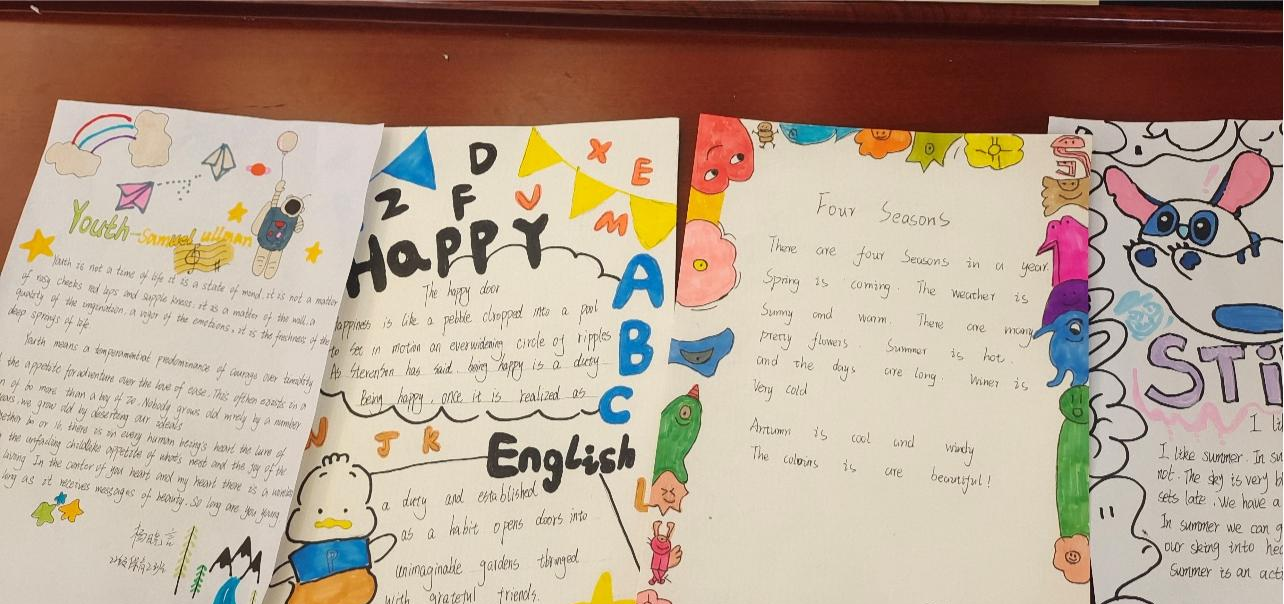 Youth-Samuel ullman
Youth is not a time of life it is a state of mind. it is not a matter
of rosy cheeks red lips and supple kness. it is a matter of the will. a
quality of the imgenation. a vigor of the emotions. it is the freshness of the
deep springs of life
Youth means a temperamental predominance of courage over timidity
the appetite for adventure over the love of ease. This often exists in a
of 60 more than a boy of 20. Nobody grows old mrely by a number
we grow old by deserting our ideals
60 or 16. there is in every human being's heart the lure of
the unfailing childlike appetite of what's nest and the joy of the
living. In the center of your heart and my heart there is a
long as it receives messages of beauty. So long are you young
Z D F X E V M
Happy
A B C
The happy door
appiness is like a pebble dropped into a pool
to set in motion an everwidening circle of ripples
As Stevenson has said. being happy is a duty
Being happy. once it is realized as
N J K
English
L
a duty and established
as a habit opens doors into
unimaginable gardens thringed
with grateful friends.
Four Seasons
There are four Seasons in a year.
Spring is coming. The weather is
Sunny and warm. There are many
pretty flowers. Summer is hot.
and the days are long. Winer is
Very cold
Artumn is cool and windy
The colours is are beautiful!
Sti
I li
I like summer. In su
not. The sky is very b
sets late. We have a
In summer we can g
our sking into hea
Summer is an acti